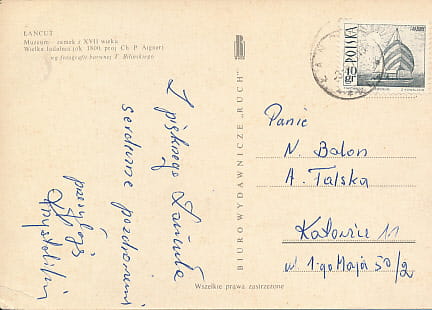 ŁAŃCUT
Muzeum - zamek z XVII wieku
Wielka Jadalnia (ok. 1800, proj. Ch. P. Aigner)
wg fotografii barwnej T. Bilińskiego
Z pięknego Łańcuta
serdeczne pozdrowienia
przesyłają
BIUROWYDAWNICZE „RUCH"
Wszelkie prawa zastrzeżone
POLSKA
10 gr
Panie
N. Balon
A. Talska
Katowice 11
ul 1-go Maja 50/2